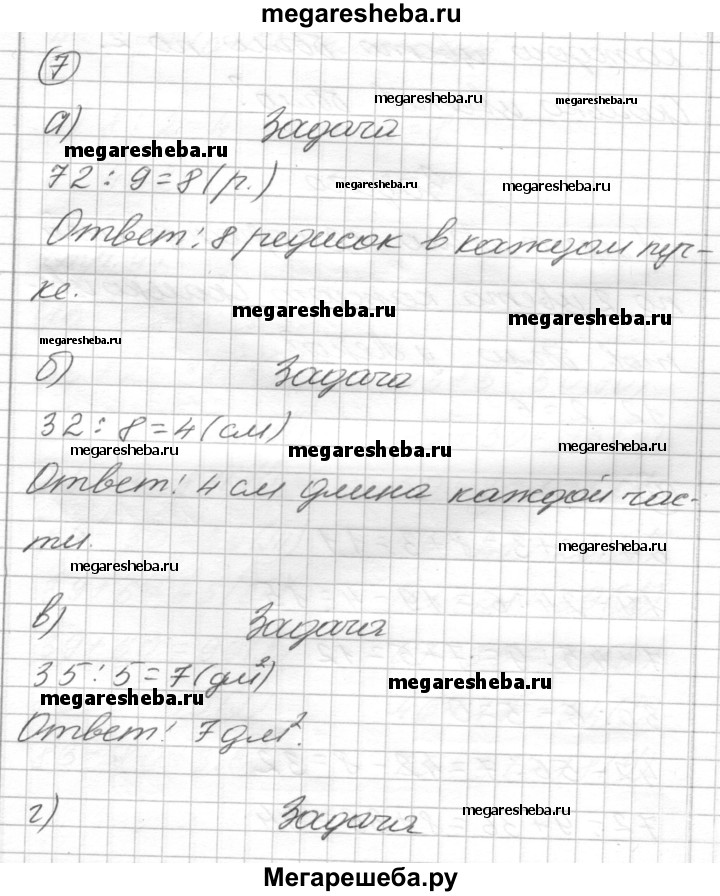 megaresheba.ru
7
megaresheba.ru megaresheba.ru
а) Задача
megaresheba.ru
72 : 9 = 8 (р.)
megaresheba.ru megaresheba.ru
Ответ: 8 редисок в каждом пуч-
ке.
megaresheba.ru megaresheba.ru
megaresheba.ru
б) Задача
32 : 8 = 4 (см)
megaresheba.ru megaresheba.ru megaresheba.ru
Ответ: 4 см длина каждой час-
ти.
megaresheba.ru
megaresheba.ru
в) Задача
35 : 5 = 7 (дм²)
megaresheba.ru megaresheba.ru
Ответ: 7 дм².
г) Задача
megaresheba.ru
Мегарешеба.ру